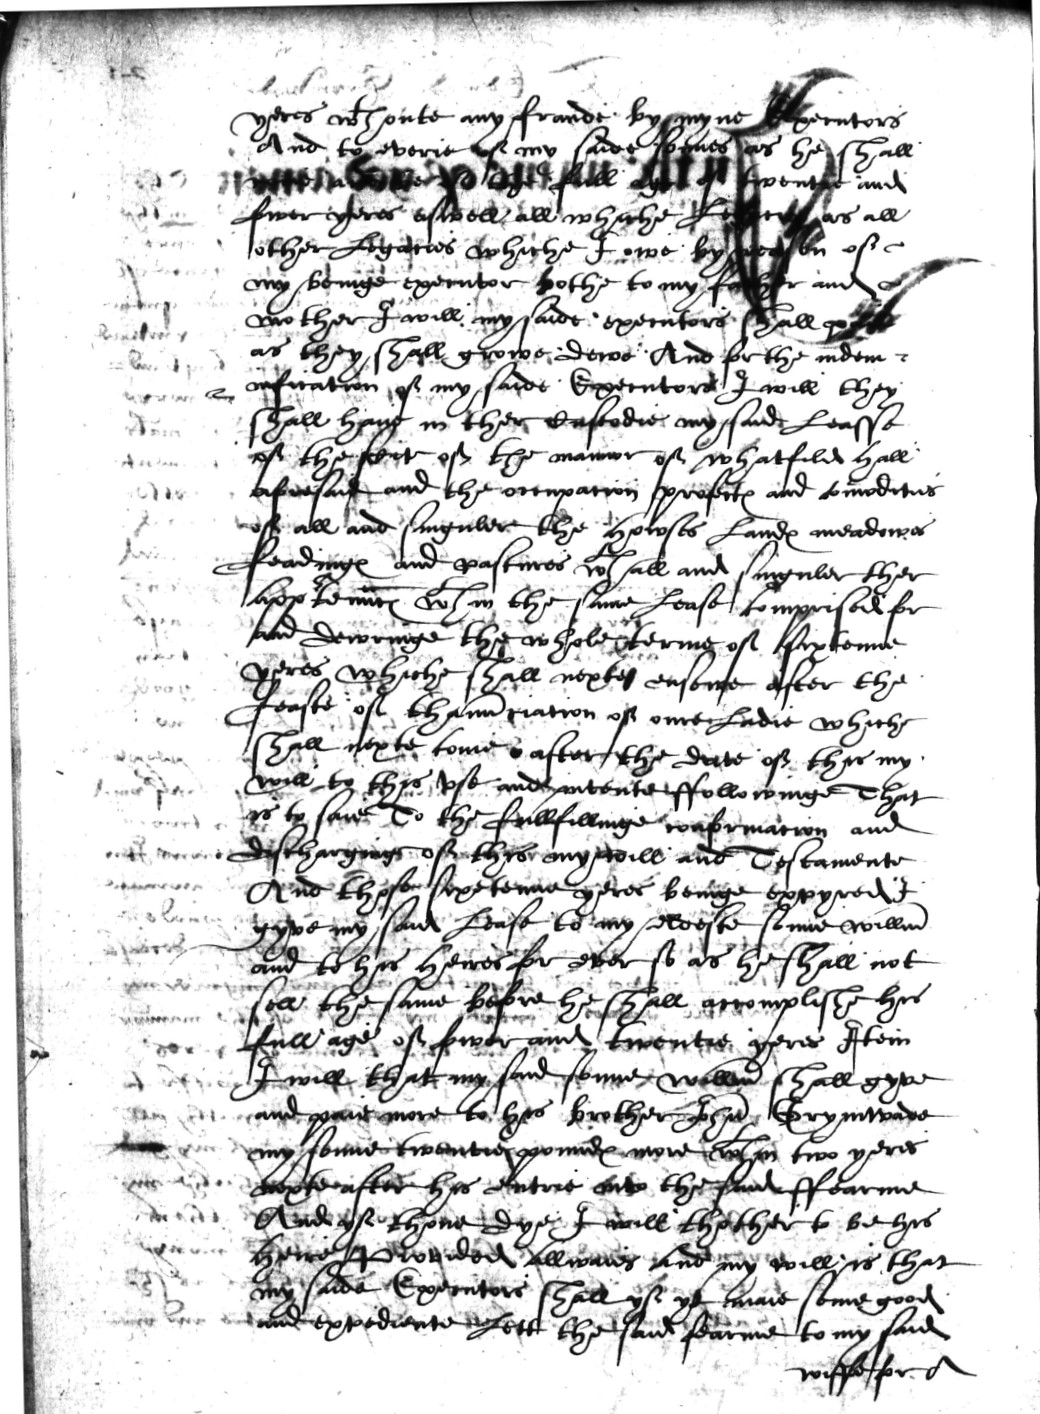 yeres wthoute any fraude by myne Executors
And to everie of my saide sonnes as he shall
full age of twentie and
fower yeres aswell all whiche Legacies as all
other Legacies whiche I owe by reason of
my beinge executor bothe to my father and
mother I will my saide executors shall paie
as they shall growe dewe And for the indem
nification of my saide Executors I will they
shall haue in ther Custodie my said Leasse
of the scite of the mannor of Whatfild Hall
aforesaid and the occupacion profectes and comodities
of all and singuler the Howses Landes meadowes
feadinges and pastures wth all and singuler ther
apptennces wthin the same Lease comprised for
and dewringe the whole terme of sixtenne
yeres whiche shall nexte ensewe after the
feaste of thannuciation of oure Ladie whiche
shall nexte come after the date of this my
will to this vse and intente ffollowinge That
is to saie To the fullfillinge confirmacion and
discharginge of this my will and Testamente
And those sixetenne yeres beinge expyred I
gyve my said Lease to my eldeste sonne Willm
and to his heires for ever so as he shall not
sell the same before he shall accomplishe his
full age of fower and twentie yeres Item
I will that my said sonne Willm shall gyve
and paie more to his brother John Grymwade
my sonne twentie poundes more wthin two yeres
nexte after his entrie into the said ffearme
And yf thone dye I will thother to be his
heire Provided allwaies and my will is that
my saide Executors shall yf yt maie seme good
and expediente Lett the said fearme to my said
wiffe for